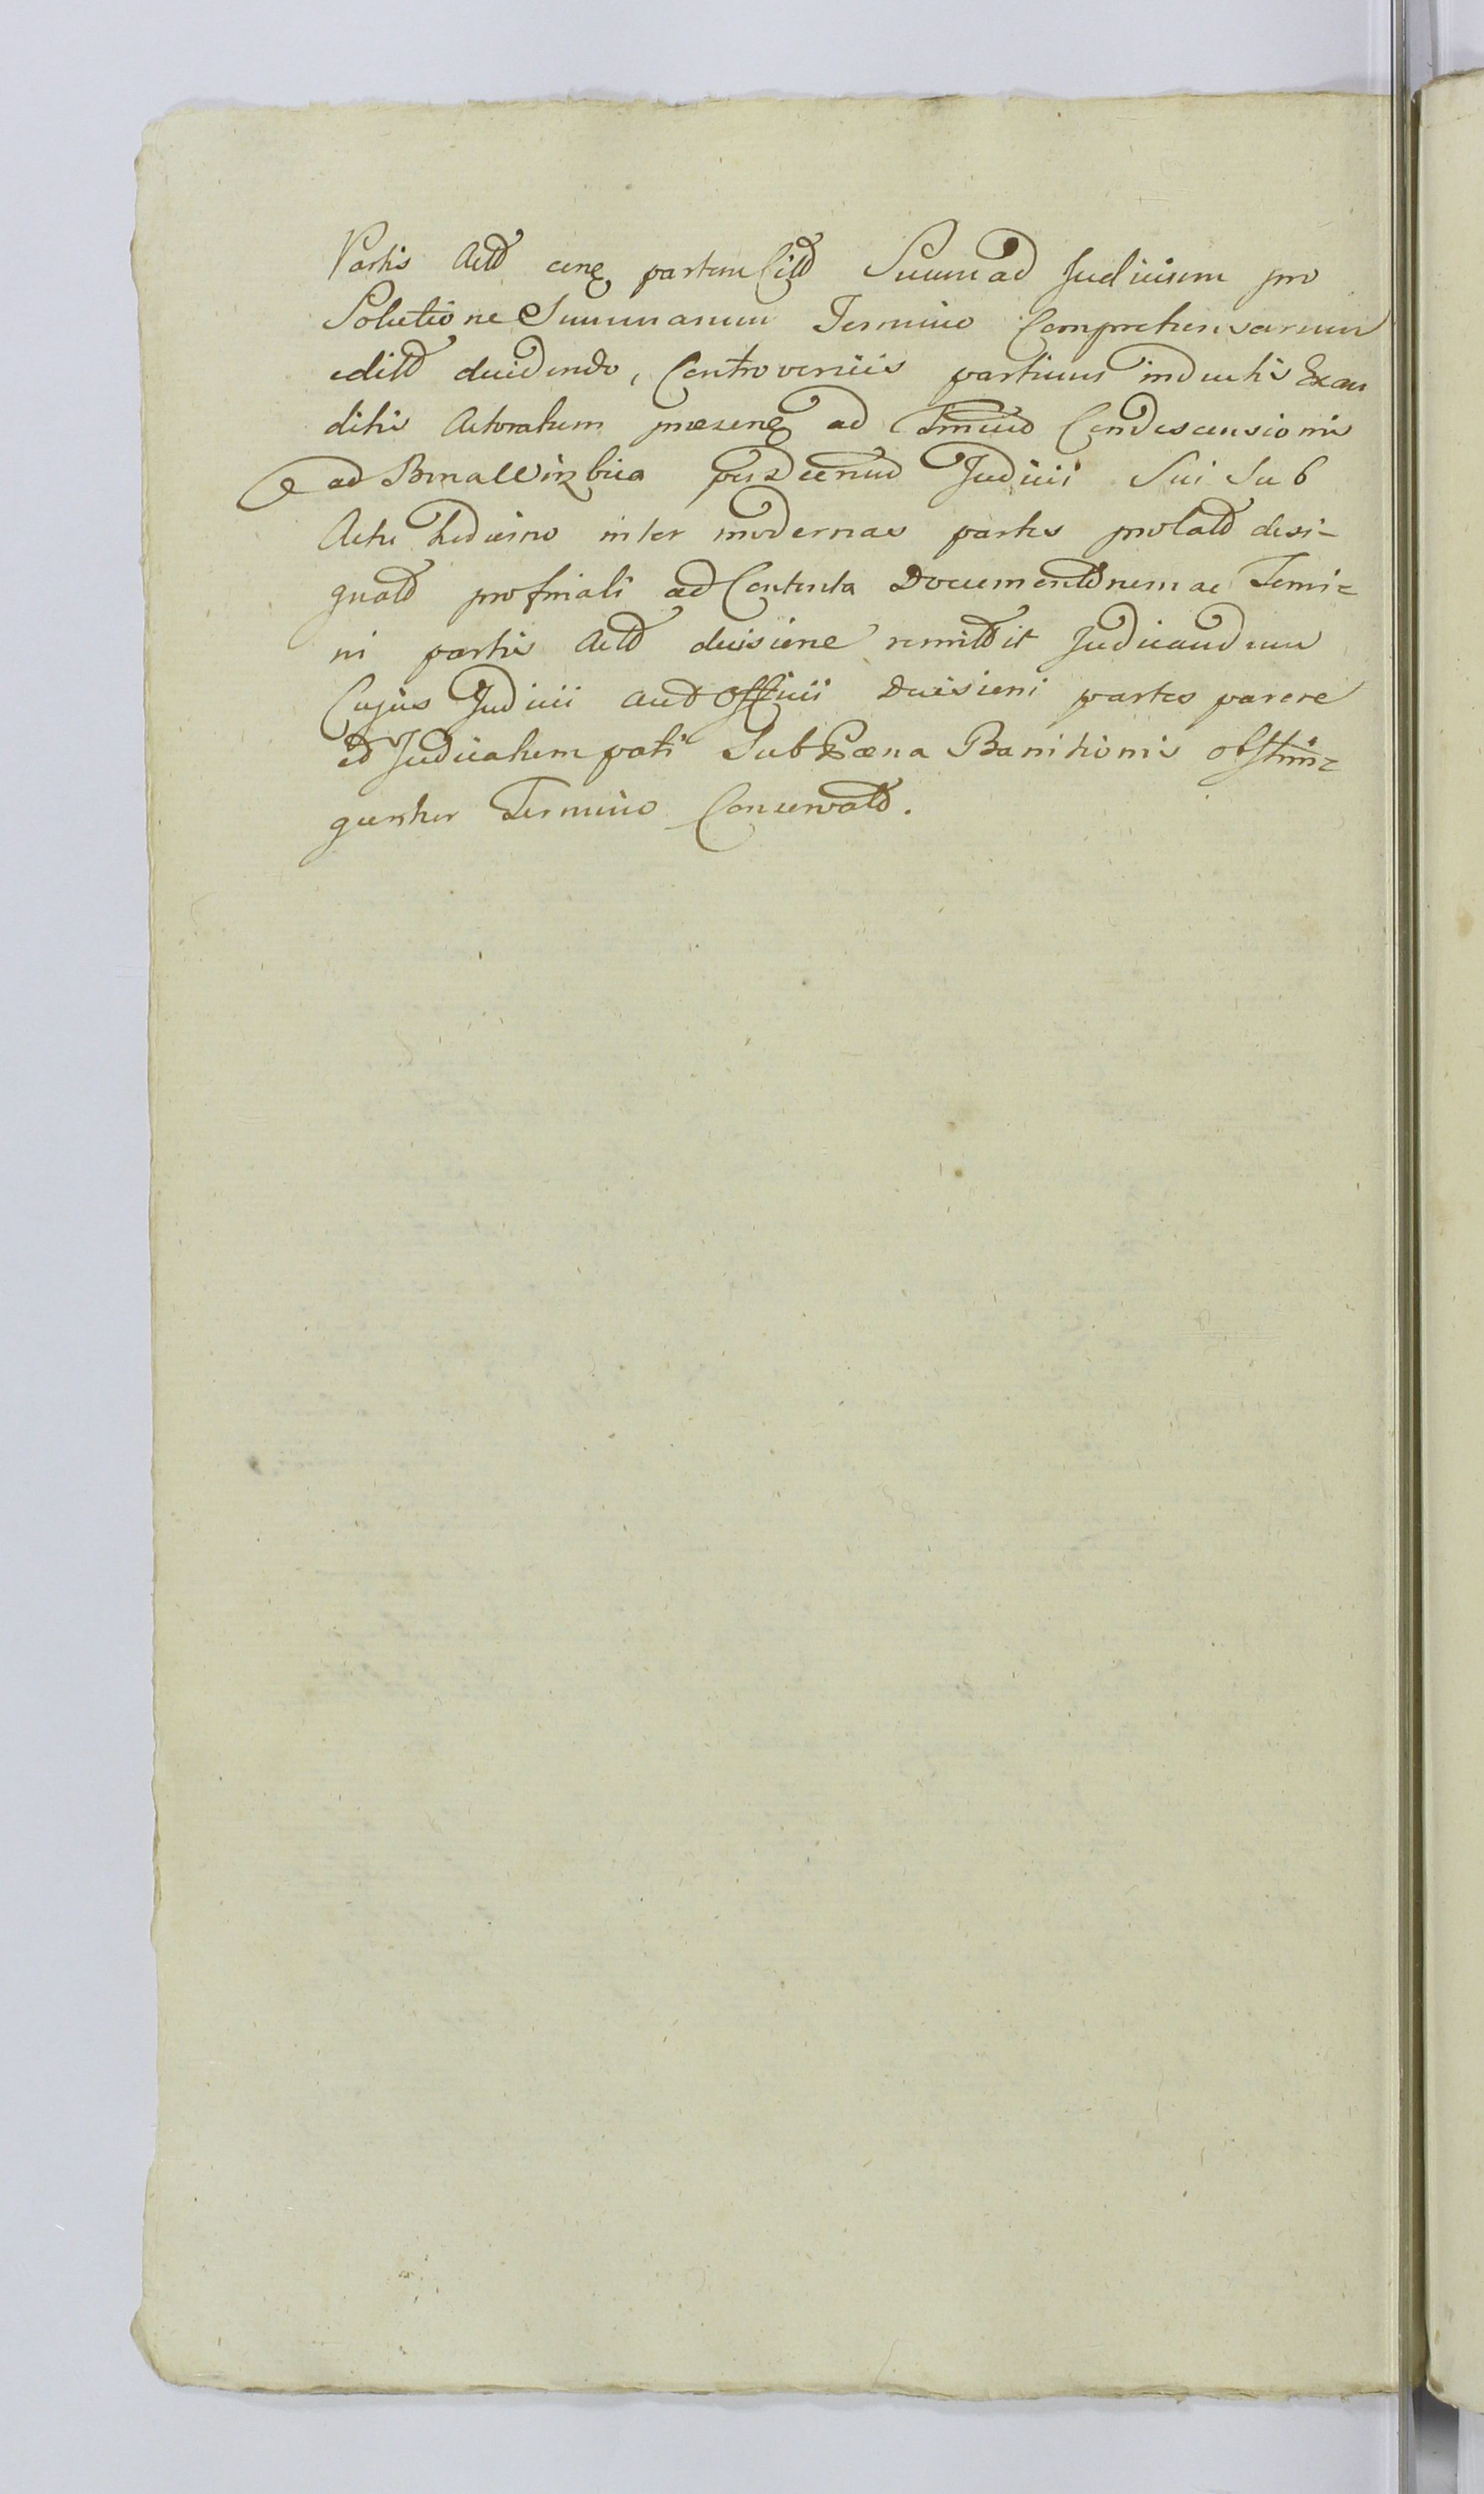 Partis Actt cing partem Citt Suum ad Judicium pro
Solutione Summarum Termino Comprehensarum
editt decidendo, Controversiis partium inductis Exau
ditis Actoratum præseng ad Condescensionis
ad Bona per Decretum Judicii Sui Sub
Actu hodierno inter modernas partes prolatt desi-
gnatt pro finali ad Contenta Documenttrum ac Termi=
ni partis Actt decisione remittit Judicandum
Cujus Judicii aut Officii Decisioni partes parere
et Judicatum pati Sub Pæna Banitionis obstrin=
guntur Termino Conservatt.